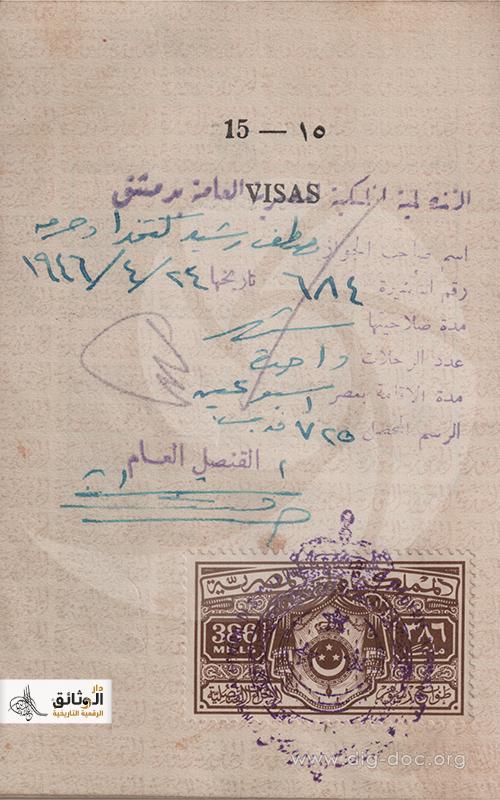 15 — ١٥
القنصلية الملكية المصرية العامة بدمشق
VISAS
اسم صاحب الجواز مصطفى رشيد كتخدا وحرمه
رقم التأشيرة ٦٨٤ تاريخها ٢٤/٤/١٩٤٦
مدة صلاحيتها شهر
عدد الرحلات واحدة
مدة الاقامة بمصر اسبوعين
الرسم المحصل ٧٢٥
القنصل العام
المملكة المصرية
386 ٣٨٦
MILLS
دار
الوثائق
الرقمية التاريخية
www.dig-doc.org